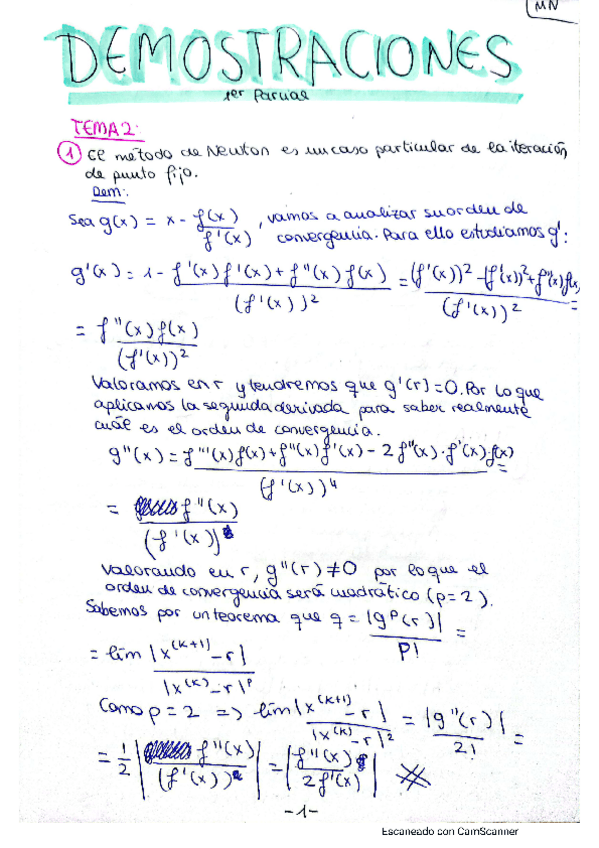 MN
DEMOSTRACIONES
1er Parcial
TEMA 2:
1 El método de Newton es un caso particular de la iteración
de punto fijo.
Dem:
Sea g(x) = x - f(x) / f'(x), vamos a analizar su orden de
convergencia. Para ello estudiamos g':
g'(x) = 1 - (f'(x) f'(x) + f''(x) f(x)) / (f'(x))² = ((f'(x))² - (f'(x))² + f''(x) f(x)) / (f'(x))² =
= f''(x) f(x) / (f'(x))²
Valoramos en r y tendremos que g'(r) = 0. Por lo que
aplicamos la segunda derivada para saber realmente
cuál es el orden de convergencia.
g''(x) = (f'''(x) f(x) + f''(x) f'(x) - 2 f''(x) · f'(x) · f(x)) / (f'(x))⁴ =
= f''(x) / (f'(x))
Valorando en r, g''(r) ≠ 0 por lo que el
orden de convergencia será cuadrático (p = 2).
Sabemos por un teorema que q = |gᵖ(r)| / p! =
= lím |x^(k+1) - r| / |x^(k) - r|ᵖ
Como p = 2 => lím |x^(k+1) - r| / |x^(k) - r|² = |g''(r)| / 2! =
= 1/2 | f''(x) / (f'(x)) | = | f''(x) / 2f'(x) |
- 1 -
Escaneado con CamScanner